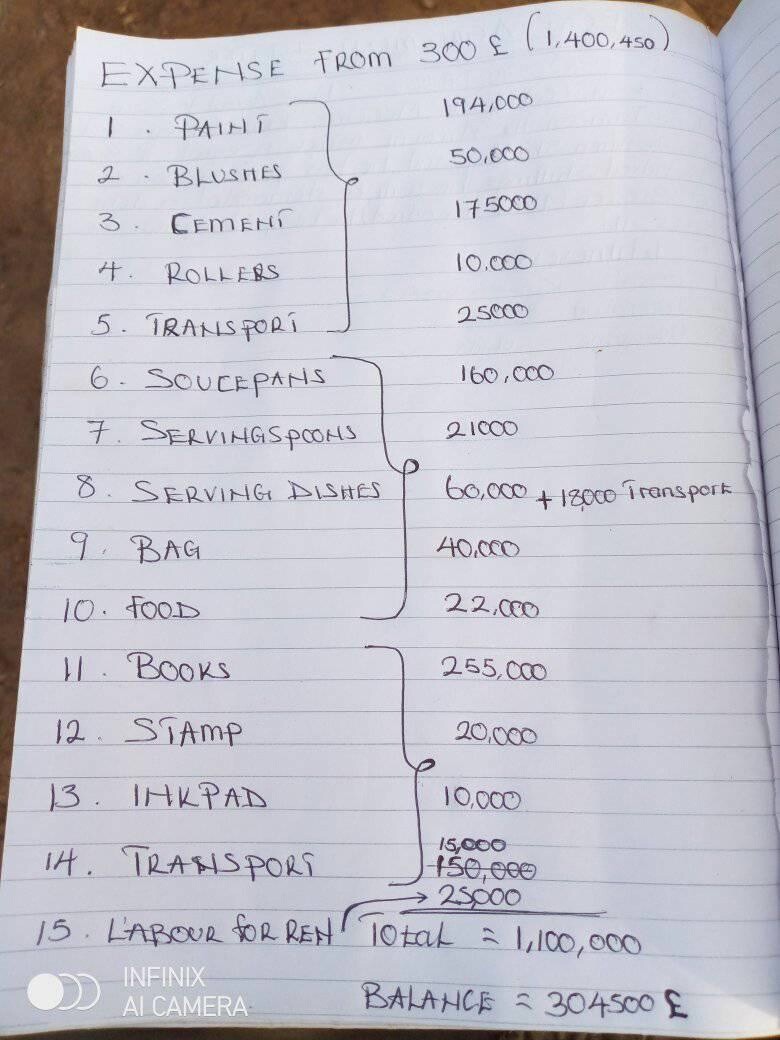 EXPENSE FROM 300 £ (1,400,450)
1. PAINT 194,000
2. BLUSHES 50,000
3. CEMENT 175000
4. ROLLERS 10,000
5. TRANSPORT 25000
6. SOUCEPANS 160,000
7. SERVINGSPOONS 21000
8. SERVING DISHES 60,000 + 18,000 Transport
9. BAG 40,000
10. FOOD 22,000
11. BOOKS 255,000
12. STAMP 20,000
13. INKPAD 10,000
15,000
14. TRANSPORT 150,000
25,000
15. LABOUR FOR REN Total = 1,100,000
BALANCE = 304500 £
INFINIX
AI CAMERA